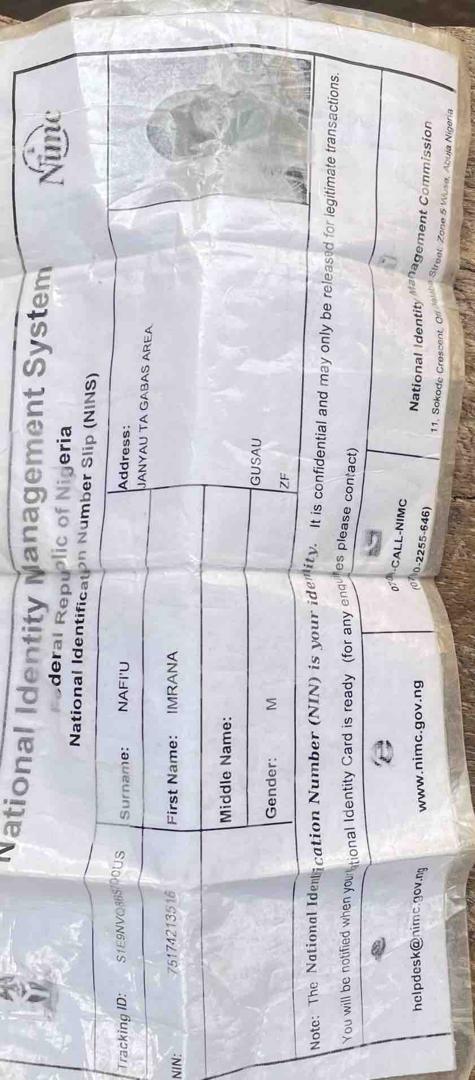 National Identity Management System
Federal Republic of Nigeria
National Identification Number Slip (NINS)
Nimc
Tracking ID:
Surname: NAFI'U
Address:
JANYAU TA GABAS AREA
NIN: 75174213516
First Name: IMRANA
Middle Name:
GUSAU
Gender: M
ZF
Note: The National Identification Number (NIN) is your identity. It is confidential and may only be released for legitimate transactions.
You will be notified when your National Identity Card is ready (for any enquires please contact)
helpdesk@nimc.gov.ng
www.nimc.gov.ng
0700-CALL-NIMC
(0700-2255-646)
National Identity Management Commission
11, Sokode Crescent, Off Street, Zone 5 Wuse, Abuja Nigeria